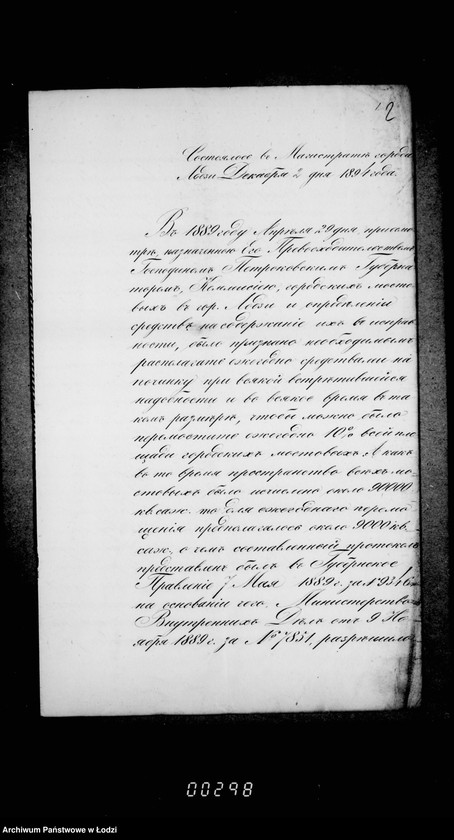 2
Состоялось въ Магистратѣ города
Лодзи Декабря 2 дня 1894 года.
Въ 1889 году Апрѣля 29 дня, при осмо-
трѣ, назначенною Его Превосходительствомъ
Господиномъ Петроковскимъ Губерна-
торомъ, Коммисіею, городскихъ мосто-
выхъ въ гор. Лодзи и опредѣленіи
средствъ на содержаніе ихъ въ исправ-
ности, было признано необходимымъ
располагать ежегодно средствами на
починку при всякой встрѣтившейся
надобности и во всякое время въ та-
комъ размѣрѣ, чтобы можно было
перемостить ежегодно 10% всей пло-
щади городскихъ мостовыхъ. А какъ
въ то время пространство всѣхъ мо-
стовыхъ было исчислено около 90000
кв. саж. то для ежегоднаго перемо-
щенія предполагалось около 9000 кв.
саж. о чемъ составленный протоколъ
представленъ былъ въ Губернское
Правленіе 7 Мая 1889 г. за №
на основаніи чего, Министерство
Внутреннихъ Дѣлъ отъ 9 Но-
ября 1889 г. за № 7851, разрѣшило
00298
Archiwum Państwowe w Łodzi